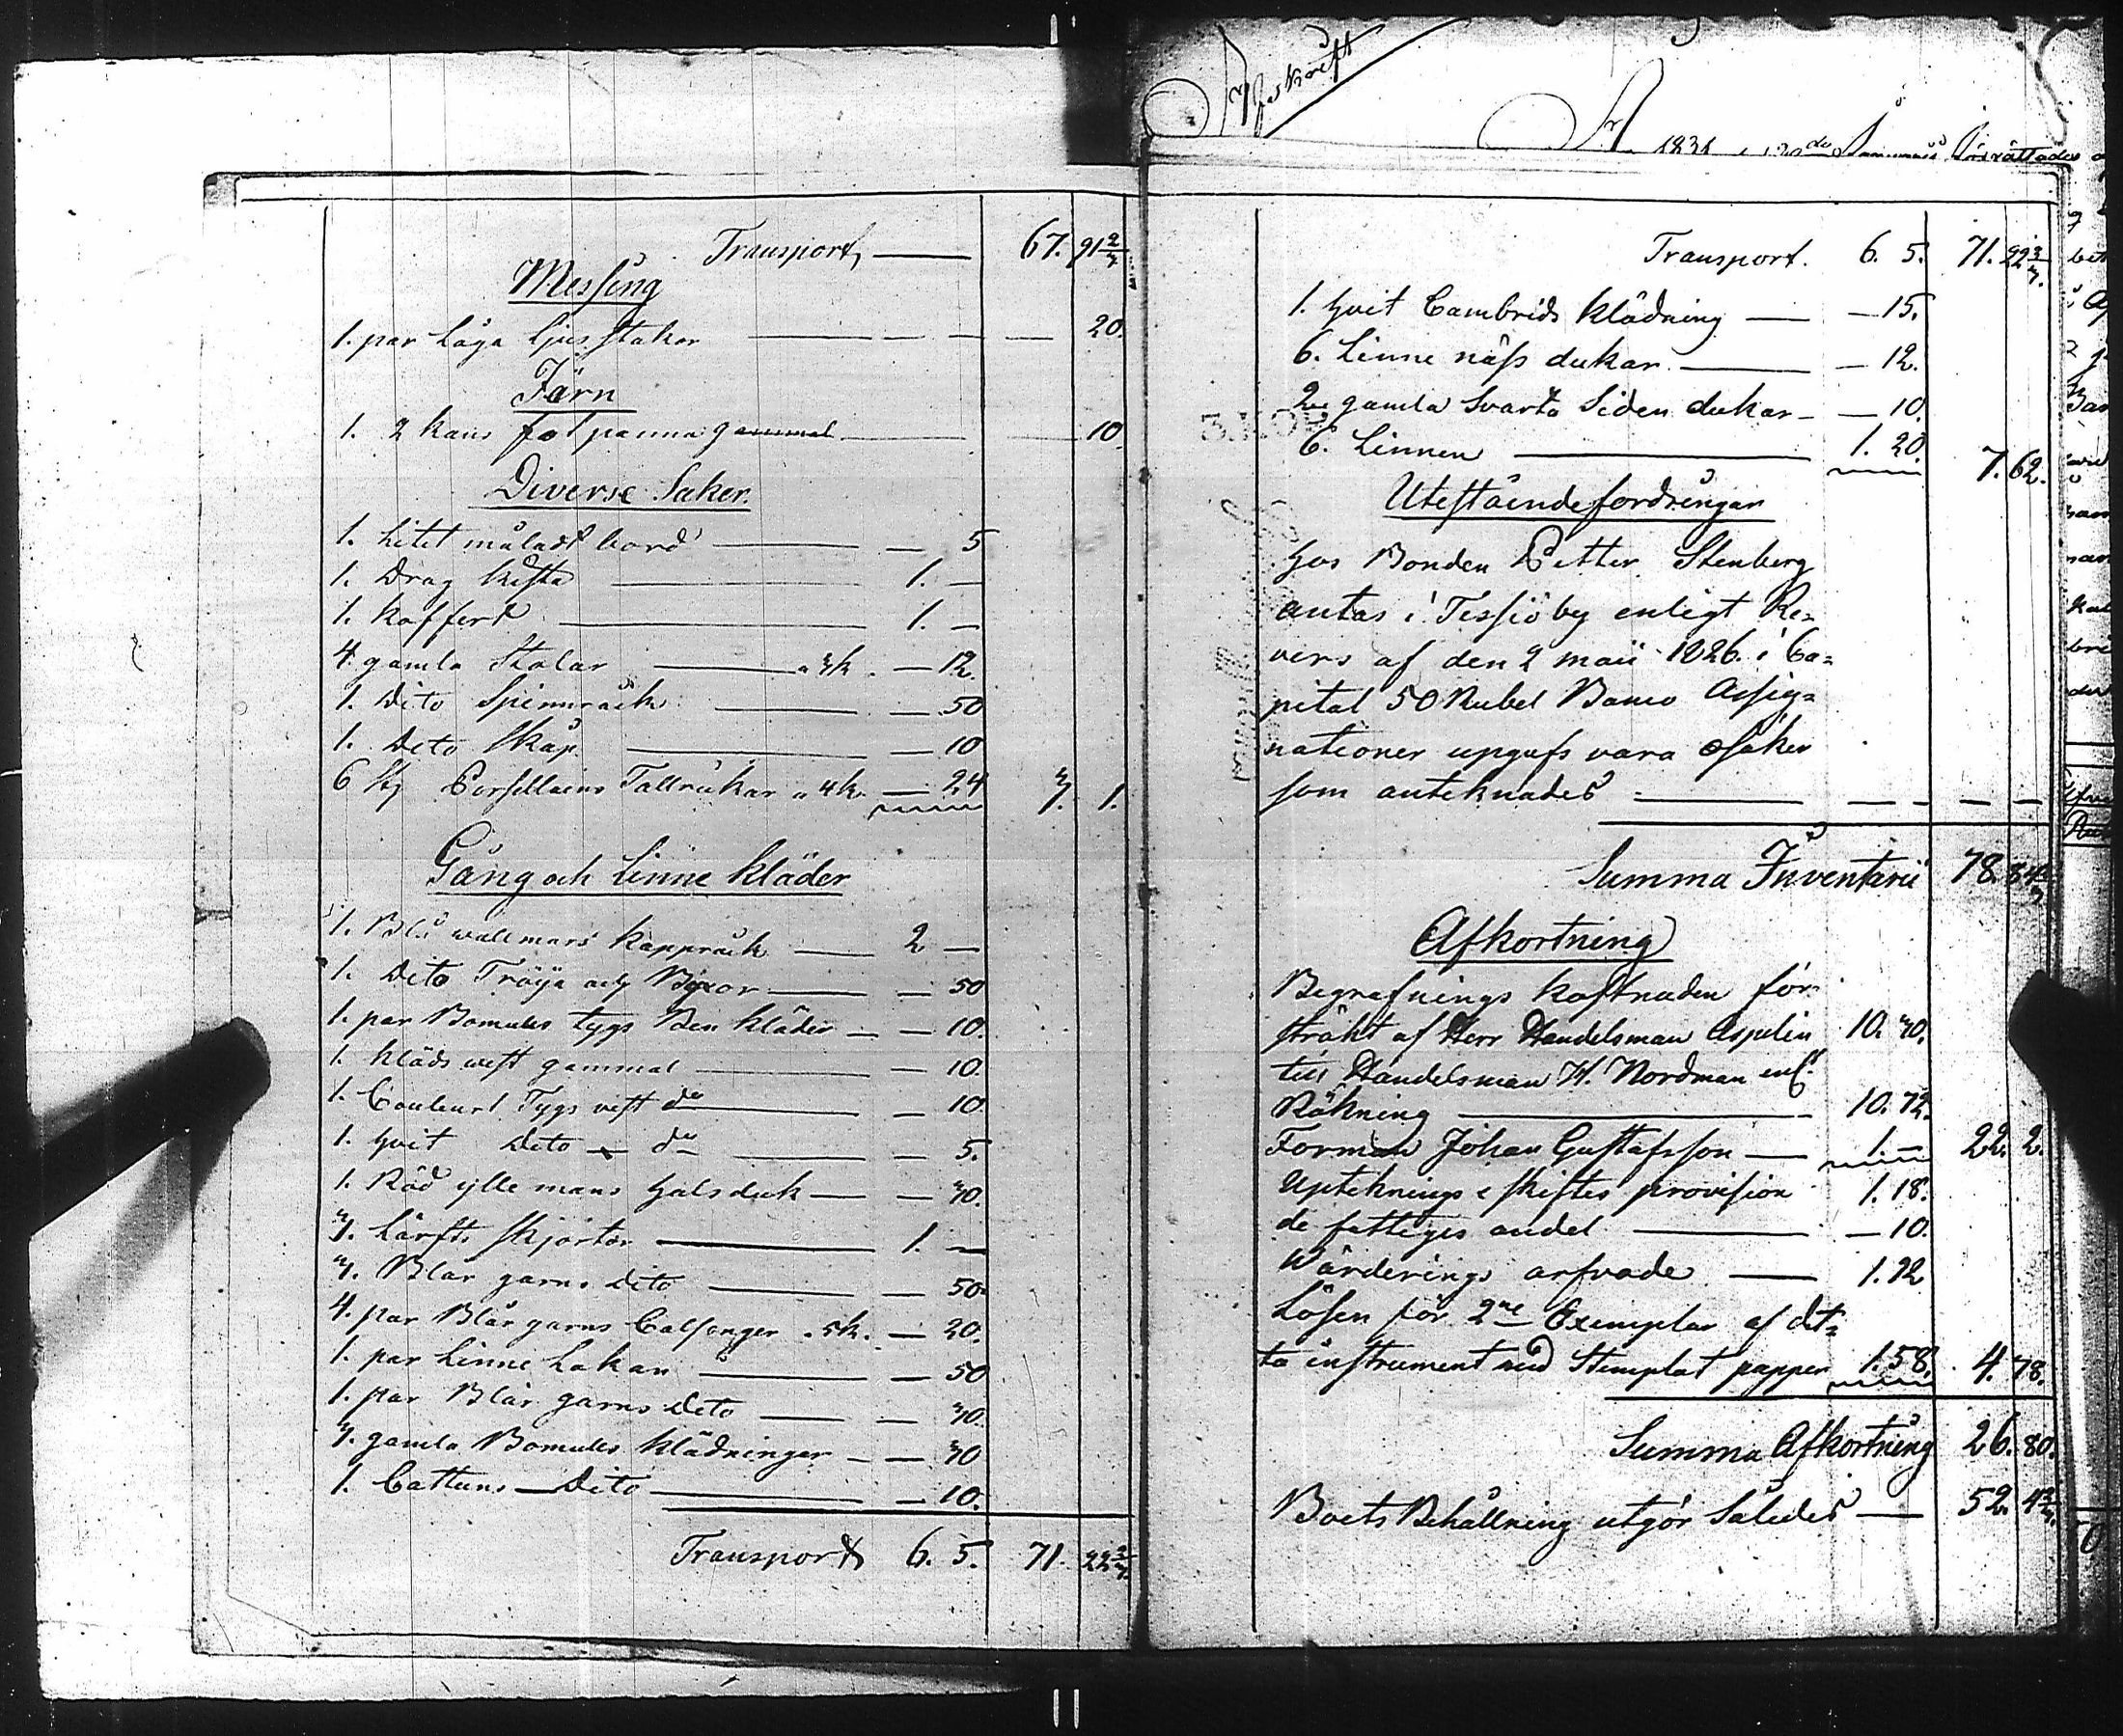 Transport, — 67. 91 2/7
Messing
1. par Låga Ljus stakar — 20.
Järn
1. 2 kans fotpanna gammal — 10.
Diverse Saker.
1. Litet måladt bord — 5
1. Drag kista — 1. —
1. koffert — 1. —
4. gamla Stolar — a 3k. — 12.
1. Dito Spinnråck — 50
1. Dito Skåp — 10
6 st Porsellains Tallrickar a 4k. — 24 3. 1.
Gång och Linne kläder
1. Blå wallmars kappråck — 2 —
1. Dito Tröya och Byxor — 50
1. par Bomulls tygs Ben kläder — 10.
1. kläds west gammal — 10.
1. Couleurt Tygs vest do — 10.
1. hvit Dito — do — 5.
1. Röd ylle mans halsduk — 30.
3. Lärfts skjortor — 1. —
3. Blår garns dito — 50.
4. par Blår garns Calsonger a 5k. — 20.
1. par Linne Lakan — 50
1. par Blår garns dito — 30.
3. gamla Bomulls klädningar — 30
1. Cattuns Dito — 10.
Transport 6. 5. 71. 22 2/7
Afskrift
År 1831 den Januarii Förrättades
Transport. 6. 5. 71. 22 2/7.
1. hvit Cambrids klädning — 15.
6. Linne näss dukar — 12.
2. gamla Svarta Siden dukar — 10.
6. Linnen — 1. 20. 7. 62.
Uteståendefordringar
hos Bonden Petter Stenberg
antas i Tessjö by enligt Re-
vers af den 2 maii 1826. i Ca-
pital 50 Rubel Banco Assig-
nationer upgafs vara osäker
som anteknades —
Summa Inventarii 78. 84 2/7
Afkortning
Begrafnings kostnaden för-
sträkt af Herr Handelsman Aspelin 10. 30.
till Handelsman H. Nordman enl.
Räkning — 10. 72.
Forman Johan Gustafsson — 1. — 22. 2.
Upteknings e skiftes provision 1. 18.
de fattiges andel — 10.
Wärderings arfvode — 1. 92
Lösen för 2ne Exemplar af det-
ta instrument med Stemplat papper 1. 58. 4. 78.
Summa Afkortning 26. 80.
Boets Behållning utgör Således — 52. 4 2/7.